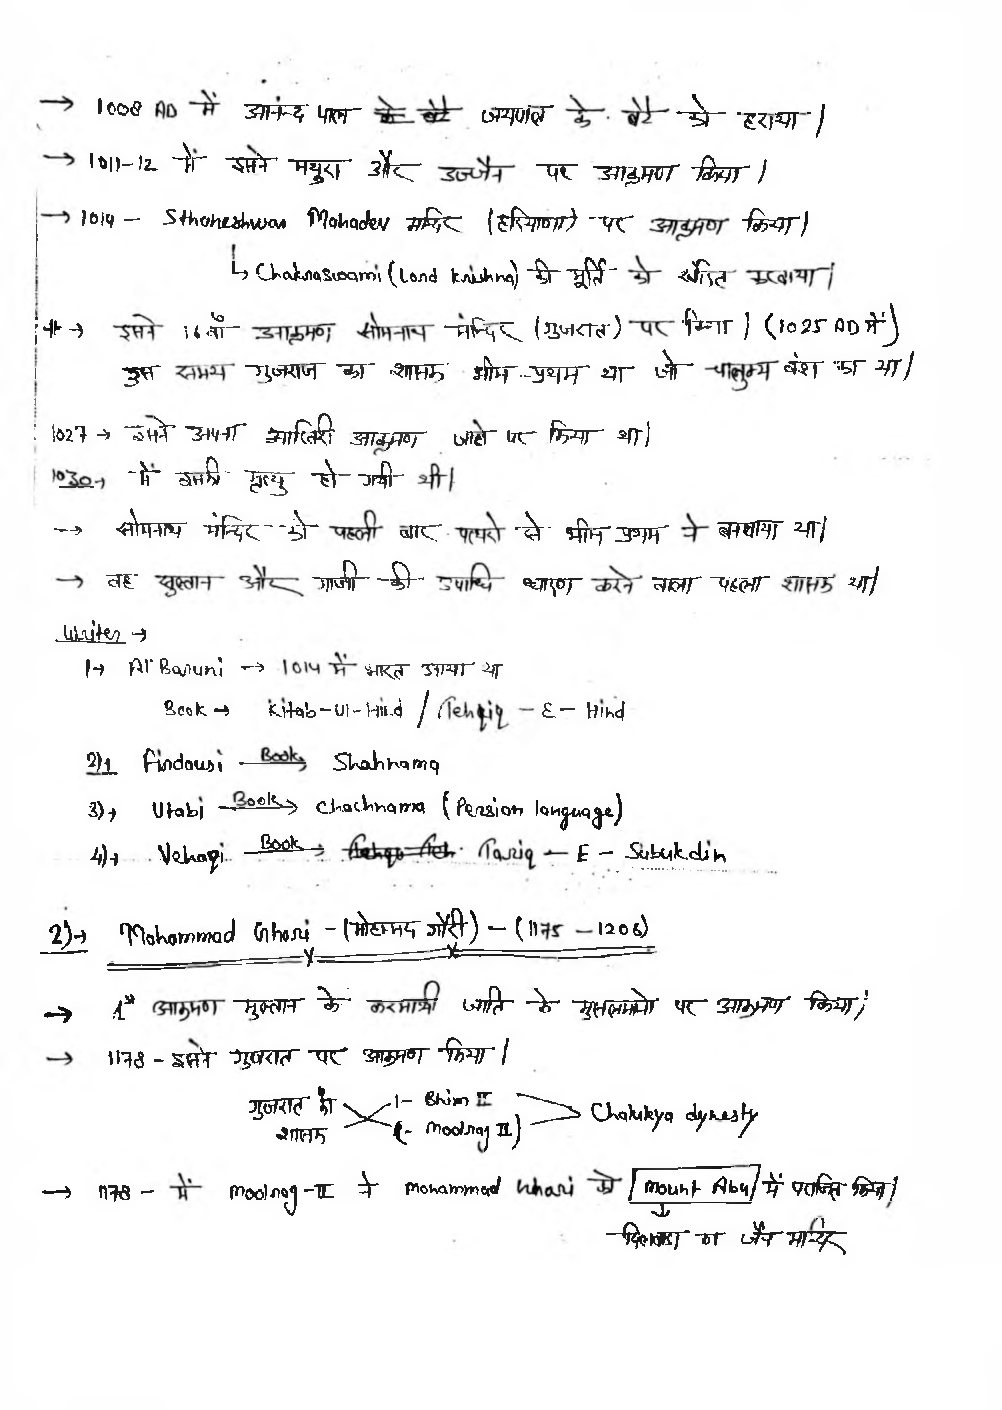 → 1008 AD में आनंद पाल के बेटे जयपाल के बेटे को हराया।
→ 1011-12 में इसने मथुरा और उज्जैन पर आक्रमण किया।
→ 1014 - Sthaneshwar Mahadev मन्दिर (हरियाणा) पर आक्रमण किया।
↳ Chakraswami (Lord Krishna) की मूर्ति को खंडित करवाया।
* → इसने 16वाँ आक्रमण सोमनाथ मंन्दिर (गुजरात) पर किया। (1025 AD में)
इस समय गुजराज का शासक भीम प्रथम था जो चालुक्य वंश का था।
1027 → इसने अपना आखिरी आक्रमण जाटो पर किया था।
1030 → में इसकी मृत्यु हो गयी थी।
→ सोमनाथ मंन्दिर को पहली बार पत्थरो से भीम प्रथम ने बनवाया था।
→ वह सुल्तान और गाजी की उपाधि धारण करने वाला पहला शासक था।
Writer →
1→ Al Baruni → 1014 में भारत आया था
Book → Kitab-Ul-Hind / Tehqiq - E - Hind
2)→ Firdausi Book→ Shahnama
3)→ Utabi Book→ Chachnama (Persion language)
4)→ Vehaqi Book→ Tariq - E - Subukdin
2)→ Mohammad Ghori - (मोहम्मद गौरी) - (1175 - 1206)
→ 1st आक्रमण मुल्तान के करमाथी जाति के मुसलमानो पर आक्रमण किया।
→ 1178 - इसने गुजरात पर आक्रमण किया।
गुजरात के 1- Bhim II
शासक 2- Moolraj II) Chalukya dynesty
→ 1178 - में Moolraj-II ने Mohammad Ghori को Mount Abu में पराजित किया।
दिलवाड़ा का जैन मन्दिर